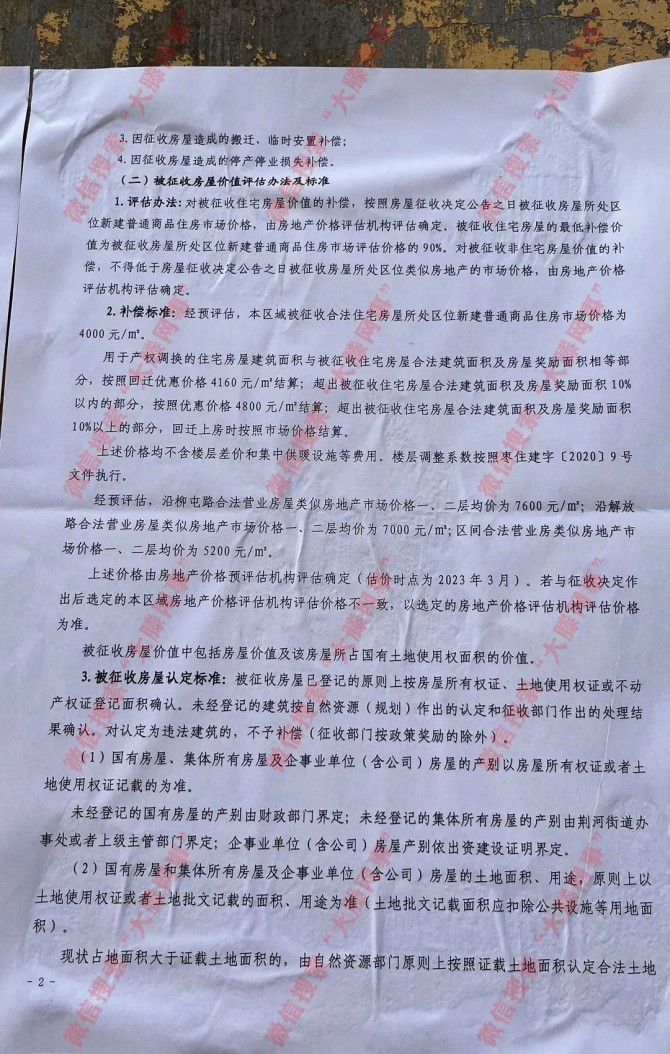 3.因征收房屋造成的搬迁、临时安置补偿；
4.因征收房屋造成的停产停业损失补偿。
（二）被征收房屋价值评估办法及标准
1.评估办法：对被征收住宅房屋价值的补偿，按照房屋征收决定公告之日被征收房屋所处区
位新建普通商品住房市场价格，由房地产价格评估机构评估确定。被征收住宅房屋的最低补偿价
值为被征收房屋所处区位新建普通商品住房市场评估价格的90%。对被征收非住宅房屋价值的补
偿，不得低于房屋征收决定公告之日被征收房屋所处区位类似房地产的市场价格，由房地产价格
评估机构评估确定。
2.补偿标准：经预评估，本区域被征收合法住宅房屋所处区位新建普通商品住房市场价格为
4000元/㎡。
用于产权调换的住宅房屋建筑面积与被征收住宅房屋合法建筑面积及房屋奖励面积相等部
分，按照回迁优惠价格4160元/㎡结算；超出被征收住宅房屋合法建筑面积及房屋奖励面积10%
以内的部分，按照优惠价格4800元/㎡结算；超出被征收住宅房屋合法建筑面积及房屋奖励面积
10%以上的部分，回迁上房时按照市场价格结算。
上述价格均不含楼层差价和集中供暖设施等费用。楼层调整系数按照枣住建字〔2020〕9号
文件执行。
经预评估，沿柳屯路合法营业房屋类似房地产市场价格一、二层均价为7600元/㎡；沿解放
路合法营业房屋类似房地产市场价格一、二层均价为7000元/㎡；区间合法营业房类似房地产市
场价格一、二层均价为5200元/㎡。
上述价格由房地产价格预评估机构评估确定（估价时点为2023年3月）。若与征收决定作
出后选定的本区域房地产价格评估机构评估价格不一致，以选定的房地产价格评估机构评估价格
为准。
被征收房屋价值中包括房屋价值及该房屋所占国有土地使用权面积的价值。
3.被征收房屋认定标准：被征收房屋已登记的原则上按房屋所有权证、土地使用权证或不动
产权证登记面积确认。未经登记的建筑按自然资源（规划）作出的认定和征收部门作出的处理结
果确认。对认定为违法建筑的，不予补偿（征收部门按政策奖励的除外）。
（1）国有房屋、集体所有房屋及企事业单位（含公司）房屋的产别以房屋所有权证或者土
地使用权证记载的为准。
未经登记的国有房屋的产别由财政部门界定；未经登记的集体所有房屋的产别由荆河街道办
事处或者上级主管部门界定；企事业单位（含公司）房屋产别依出资建设证明界定。
（2）国有房屋和集体所有房屋及企事业单位（含公司）房屋的土地面积、用途，原则上以
土地使用权证或者土地批文记载的面积、用途为准（土地批文记载面积应扣除公共设施等用地面
积）。
现状占地面积大于证载土地面积的，由自然资源部门原则上按照证载土地面积认定合法土地
- 2 -
微信搜索“大滕网事”